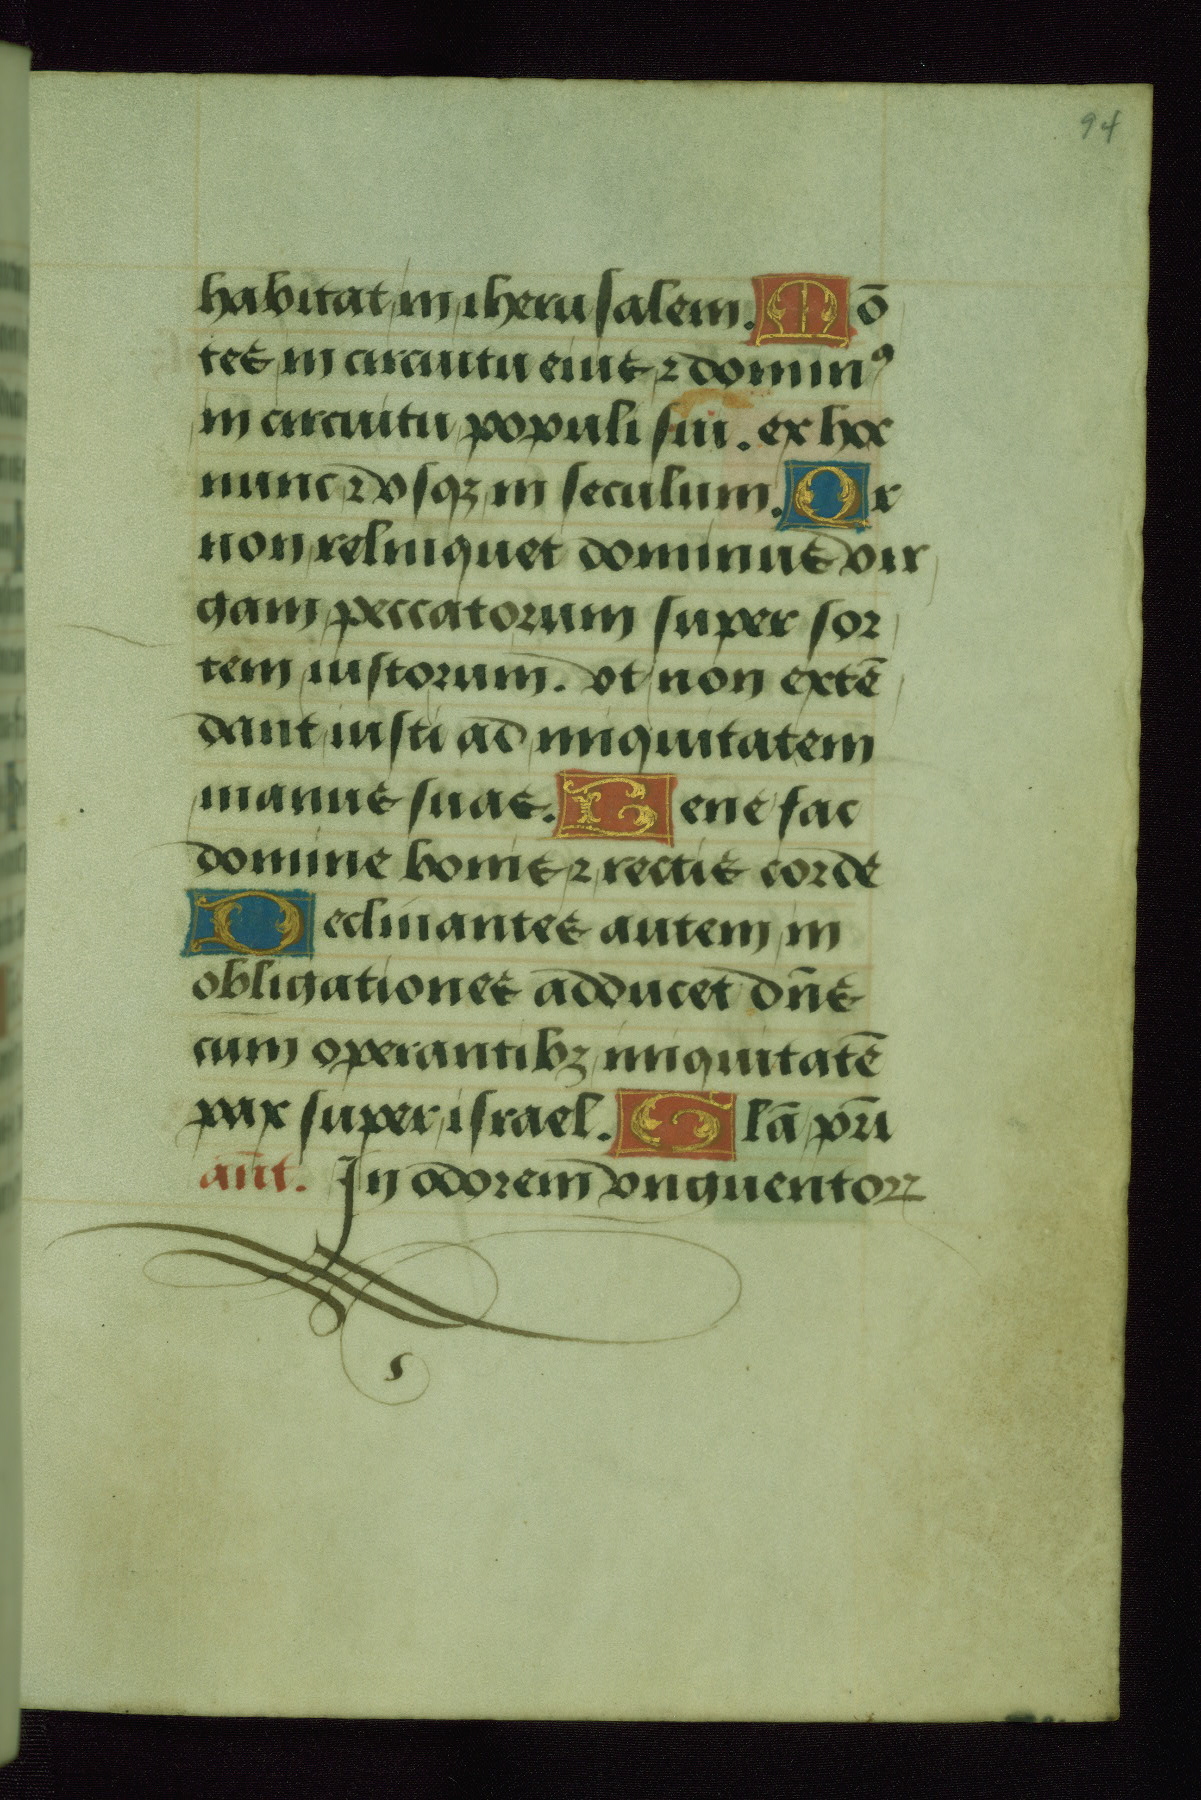 94
habitat in iherusalem. Mō
tes in circuitu eius ⁊ dominꝰ
in circuitu populi sui. ex hoc
nunc ⁊ vsqꝫ in seculum. Qr
non relinquet dominus vir
gam peccatorum super sor
tem iustorum. vt non extē
dant iusti ad iniquitatem
manus suas. Bene fac
domine bonis ⁊ rectis corde
Declinantes autem in
obligationes adducet dn̄s
cum operantibꝫ iniquitatē
pax super israel. Glā pr̄i
an̄t. In odorem vnguentorꝝ
s